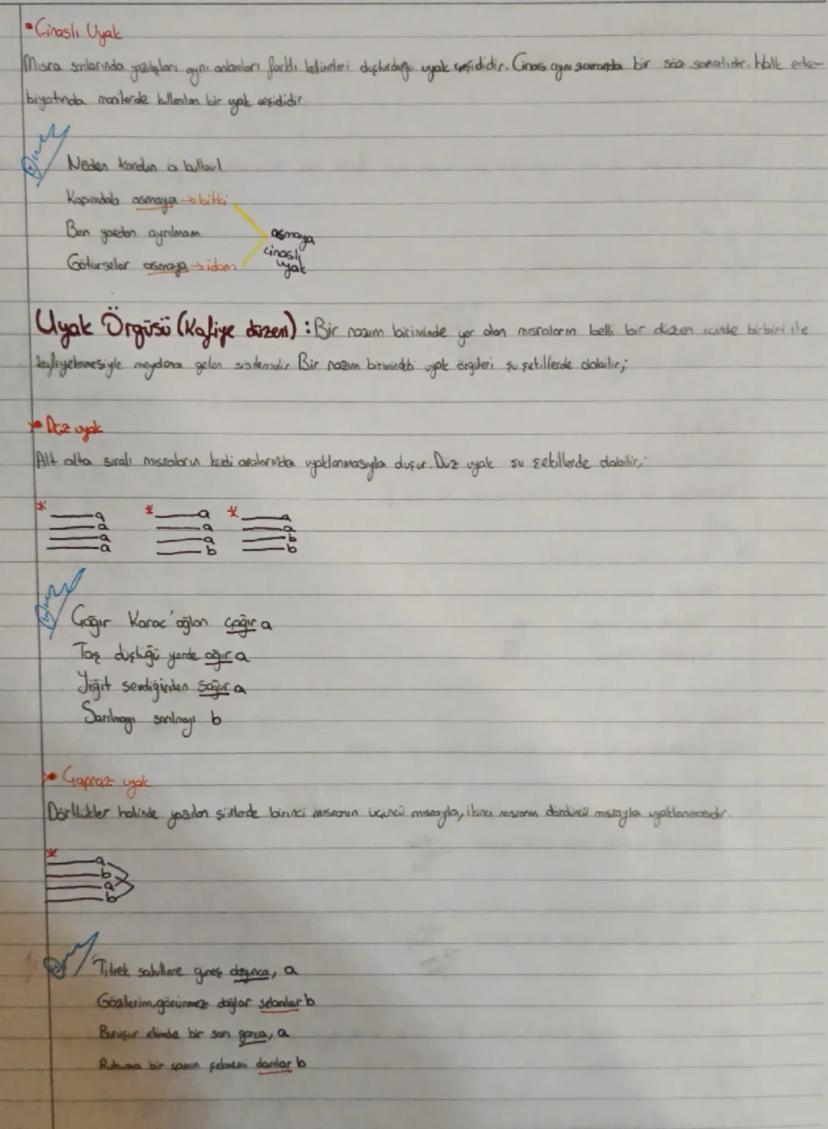 • Cinaslı Uyak
Mısra sonlarında yazılışları aynı anlamları farklı kelimeleri oluşturduğu uyak çeşididir. Cinas aynı zamanda bir söz sanatıdır. Halk ede-
biyatında manilerde kullanılan bir uyak çeşididir.
Neden kondun a bülbül
Kapımdaki asmaya → bitki
Ben yarden ayrılmam
Götürseler asmaya → idam
asmaya
cinaslı
uyak
Uyak Örgüsü (Kafiye düzeni) : Bir nazım biriminde yer alan mısraların belli bir düzen içinde birbiri ile
kafiyelenmesiyle meydana gelen sistemdir. Bir nazım birimindeki uyak örgüleri şu şekillerde olabilir;
• Düz uyak
Alt alta sıralı mısraların kendi aralarında uyaklanmasıyla oluşur. Düz uyak şu şekillerde olabilir;
* a * a * a
a a a
a a b
a b b
Çağır Karac'oğlan çağır a
Taş düştüğü yerde ağır a
Yiğit sevdiğinden soğur a
Sarılmayı sarılmayı b
• Çapraz uyak
Dörtlükler halinde yazılan şiirlerde birinci mısranın üçüncü mısrayla, ikinci mısranın dördüncü mısrayla uyaklanmasıdır.
* a
b
a
b
Titrek sahillere güneş doyunca, a
Gözlerim görünmez dağlar selamlar b
Buruşur elimde bir sarı gonca, a
Ruhuma bir çamın şebnemi damlar b